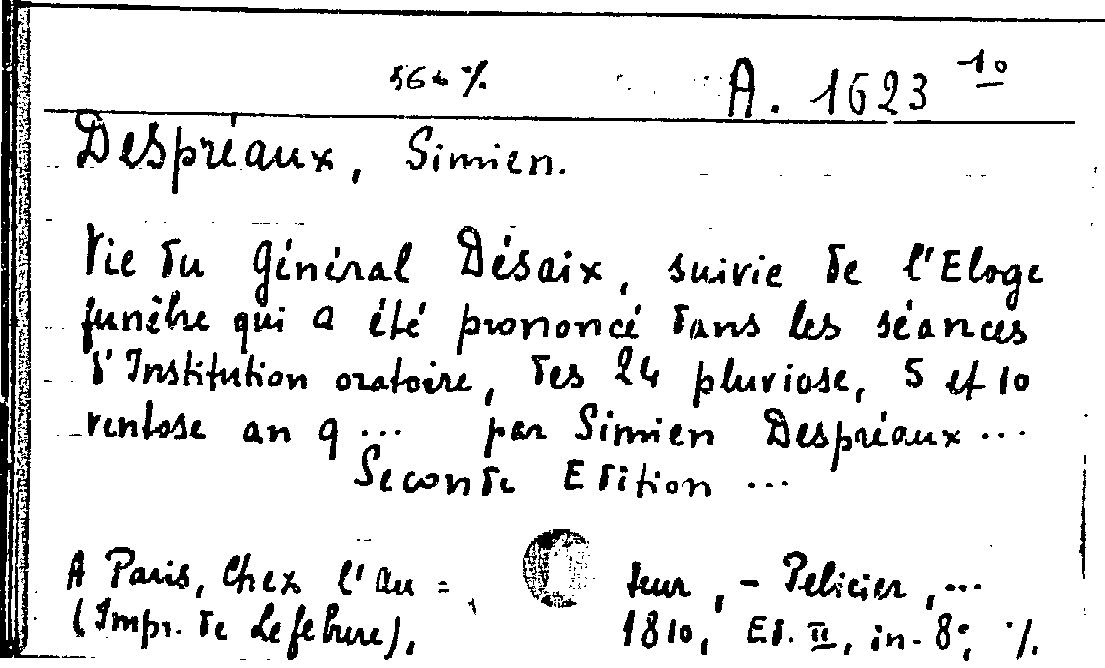 564 %. A. 1623 10
Despréaux, Simien.
Vie du Général Désaix, suivie de l'Eloge
funèbre qui a été prononcé dans les séances
d'Institution oratoire, des 24 pluviose, 5 et 10
ventose an 9 ... par Simien Despréaux ...
Seconde Edition ...
A Paris, Chez l'au = teur, - Pelicier, ...
(Impr. de Lefebvre), 1810, Ed. II, in-8°, %.